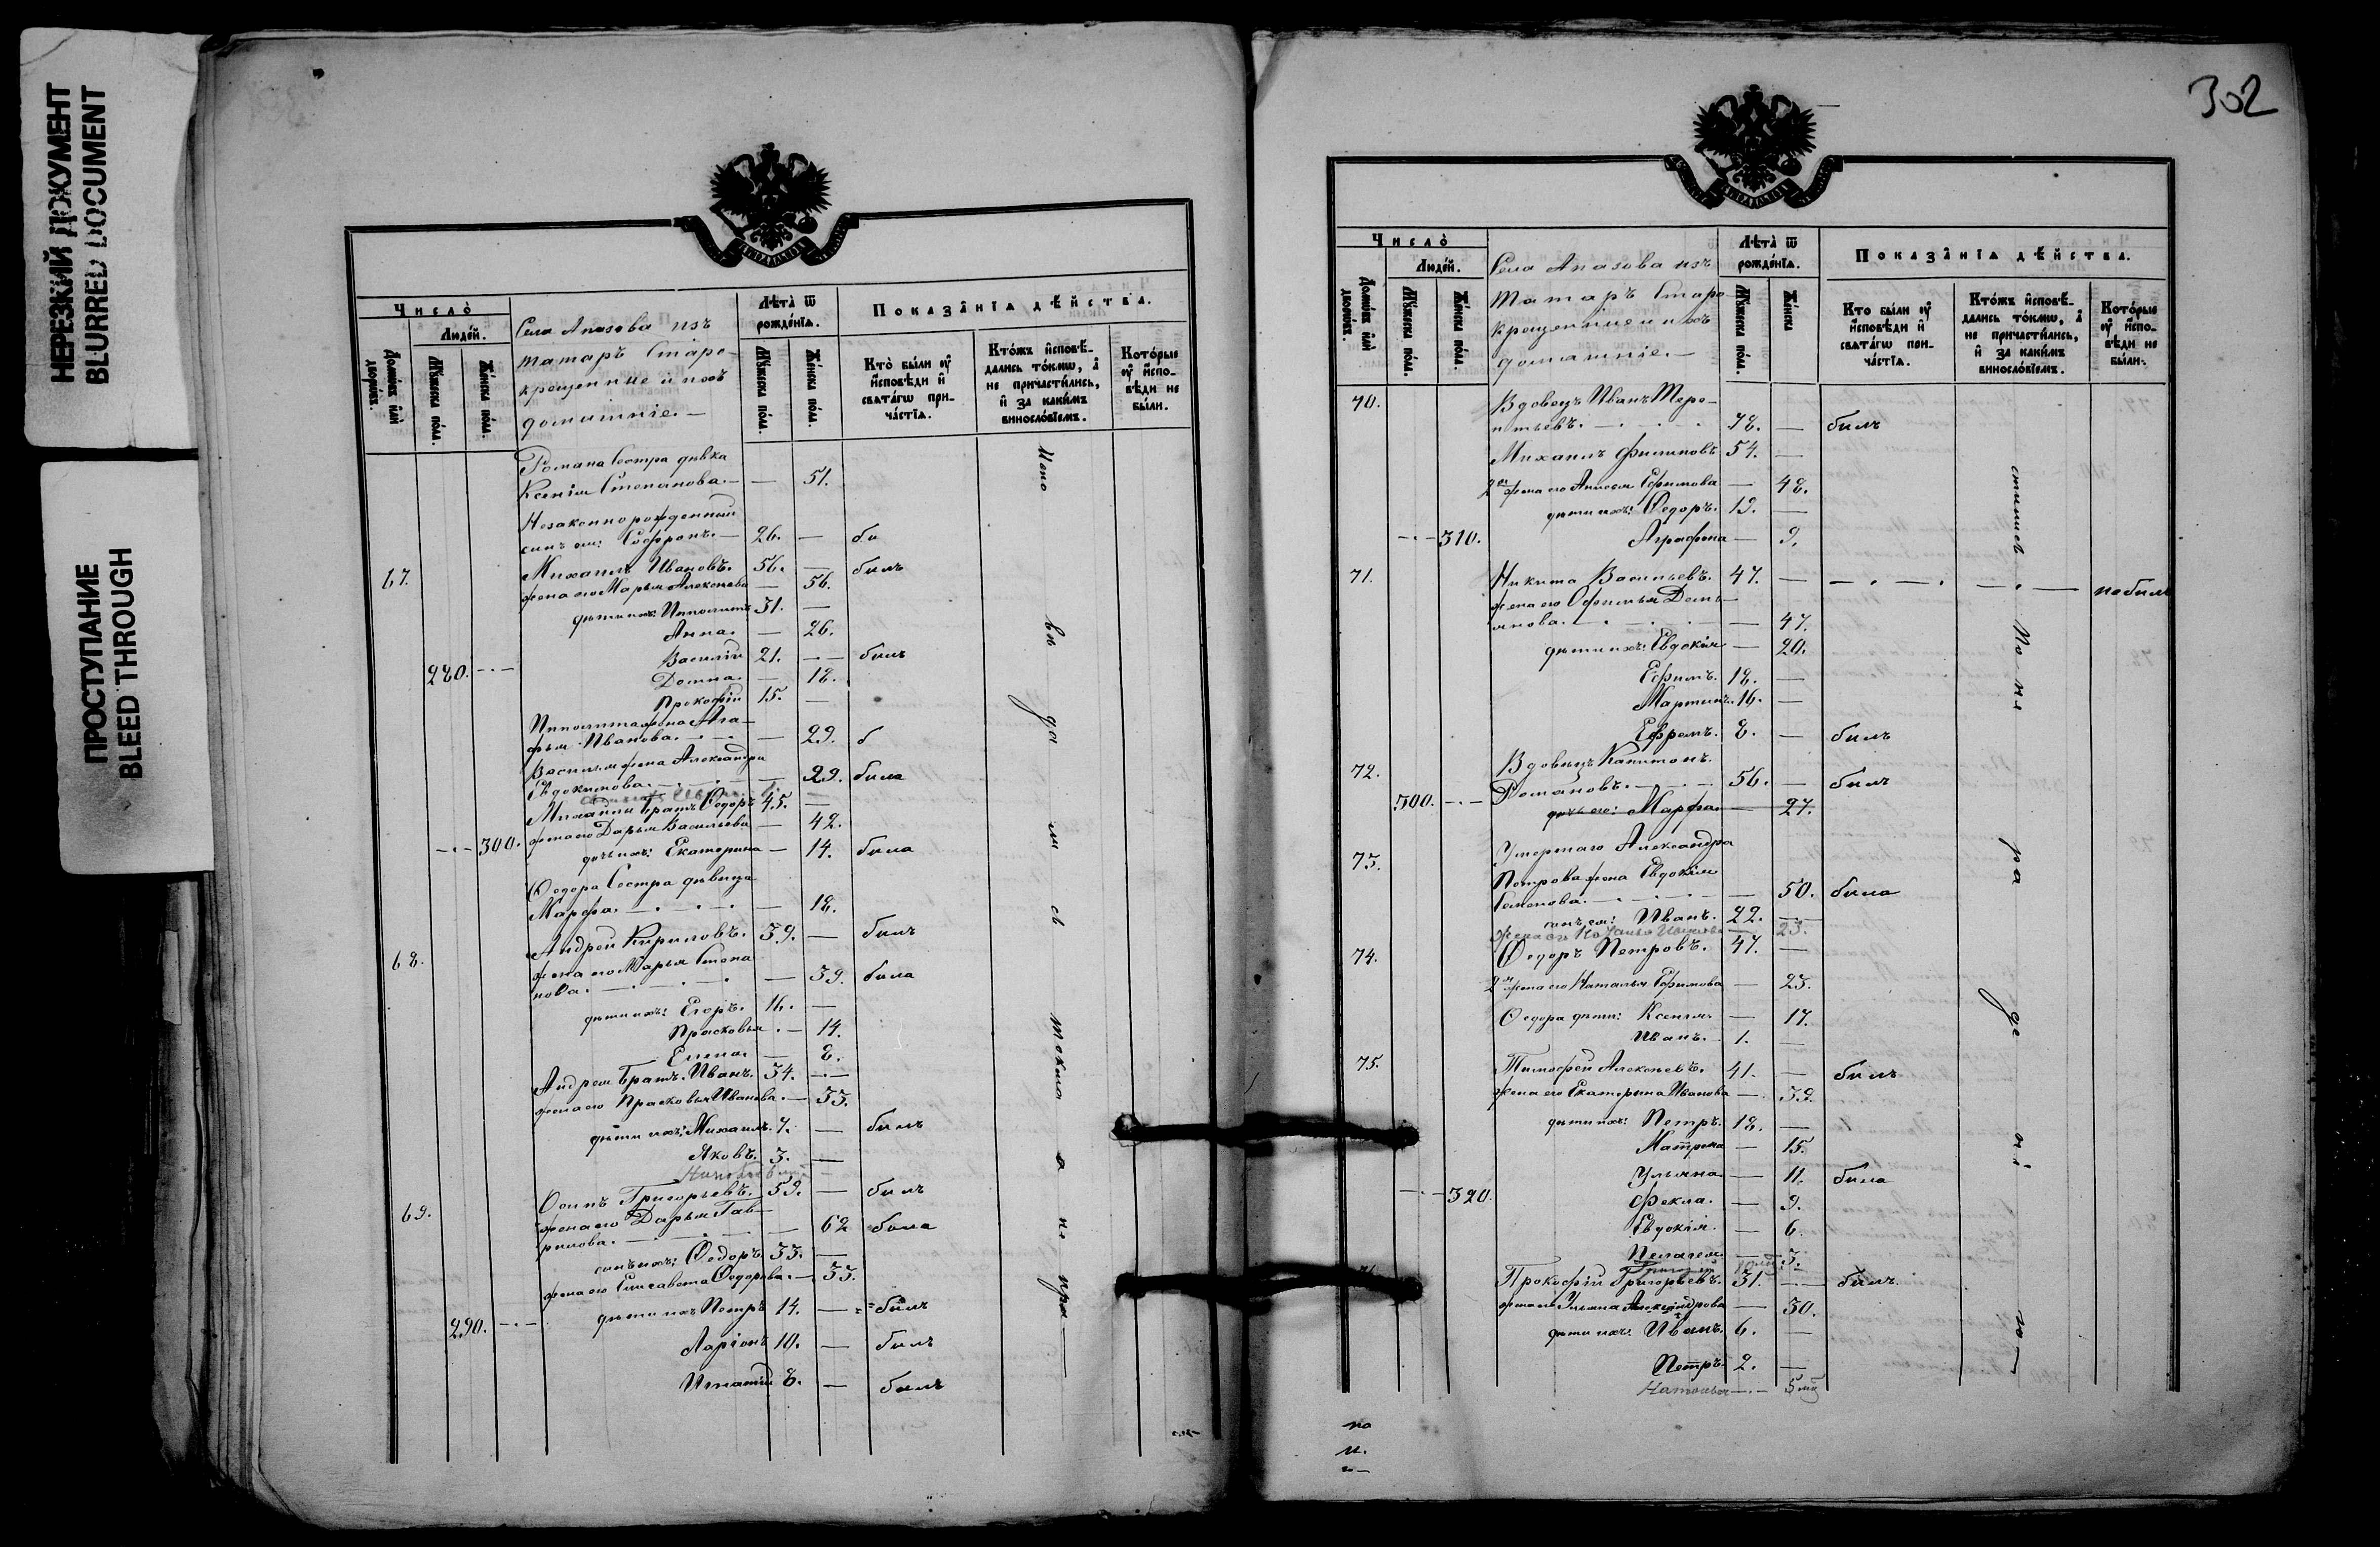 НЕРЕЗКИЙ ДОКУМЕНТ
BLURRED DOCUMENT
ПРОСТУПАНИЕ
BLEED THROUGH
Число̀
Людей.
Домѡвъ илѝ дворѡвъ.
Мꙋжеска пола.
Женска пола.
Села Апазова изъ
татаръ Старо-
крещенные и ихъ
домашніе.-
Лѣта̀ ѿ рожденїѧ.
Мꙋжеска пола.
Женска пола.
Показанїѧ дѣйства.
Кто̀ были ᲂу҆
и҆сповѣди и҆
свѧтагѡ при-
частїѧ.
Ктожъ и҆сповѣ-
дались токмѡ, а҆
не причастились,
и҆ за какимъ
винословїемъ.
Которые
ᲂу҆ и҆спо-
вѣди не
были.
Романа Сестра дѣвка
Ксенія Степанова. — 51.
Незаконнорожденный
сынъ ея: Софронъ. — 26. — бы
67. Михаилъ Ивановъ. 56. — былъ
жена его Марья Алексѣева — 56.
дѣти ихъ: Ипполитъ 31. —
Анна. — 26.
280. Василій 21. — былъ
Домна. — 18.
Прокофій 15. —
Ипполита жена Ага-
фья Иванова. — 29. б
Василья жена Александра
Евдокимова. — 29. была
Михайлы братъ Ѳедоръ 45. —
жена его Дарья Васильева — 42.
300. дочь ихъ: Екатерина — 14. была
Ѳедора Сестра дѣвица
Марфа. — 18.
68. Андрей Кириловъ. 39. — былъ
жена его Марья Степа
нова. — 39. была
дѣти ихъ: Егоръ. 16. —
Прасковья. — 14.
Елена. — 8.
Андрея братъ Иванъ. 34. —
жена его Прасковья Иванова. — 33.
дѣти ихъ: Михаилъ. 7. — былъ
Яковъ. 3. —
69. Осипъ Григорьевъ. 59. — былъ
жена его Дарья Гав-
рилова. — 62 была
сынъ ихъ: Ѳедоръ 33. —
жена его Елисавета Ѳедорова. — 33.
290. дѣти ихъ Петръ 14. — былъ
Ларіонъ 10. — былъ
Игнатій 8. — былъ
токмо а не при—
302
Число̀
Людей.
Домѡвъ илѝ дворѡвъ.
Мꙋжеска пола.
Женска пола.
Села Апазова изъ
татаръ Старо-
крещенные и ихъ
домашніе.-
Лѣта̀ ѿ рожденїѧ.
Мꙋжеска пола.
Женска
Показанїѧ дѣйства.
Кто были ᲂу҆
и҆сповѣди и҆
свѧтагѡ при-
частїѧ.
Ктожъ и҆сповѣ-
дались токмѡ, а҆
не причастились,
и҆ за какимъ
винословїемъ.
Которые
ᲂу҆ и҆спо-
вѣди не
были.
70. Вдовецъ Иванъ Тере-
нтьевъ. 78. — былъ
Михаилъ Филиповъ 54. —
2я жена его Анисья Ефимова — 48.
дѣти ихъ: Ѳедоръ. 19. —
310. Аграфена — 9.
71. Никита Васильевъ. 47. — небылъ
жена его Офимья Демь-
янова. — 47.
дѣти ихъ: Евдокія — 20.
Ефимъ. 18. —
Мартинъ. 16. —
Ефремъ. 8. — былъ
72. Вдовецъ Капитонъ
300. Романовъ. 56. — былъ
дочь его: Марфа — 27.
73. Умершаго Александра
Петрова жена Евдокія
Семенова. — 50. была
сынъ ея: Иванъ. 22. —
жена его — 23.
74. Ѳедоръ Петровъ. 47. —
2я жена его Наталья Ефимова — 25.
Ѳедора дѣти: Ксенія — 17.
Иванъ. 1. —
75. Тимофей Алексѣевъ. 41. — былъ
жена его Екатерина Иванова — 39.
дѣти ихъ: Петръ. 18. —
Матрена — 15.
Ульяна — 11. была
320. Фекла. — 9.
Евдокія. — 6.
Пелагея. — 3.
Григорій
Прокофій Григорьевъ. 31. — былъ
жена его Ульяна Александрова — 30.
дѣти ихъ: Иванъ. 6. —
Петръ. 2. —
Наталья — 5 мѣ